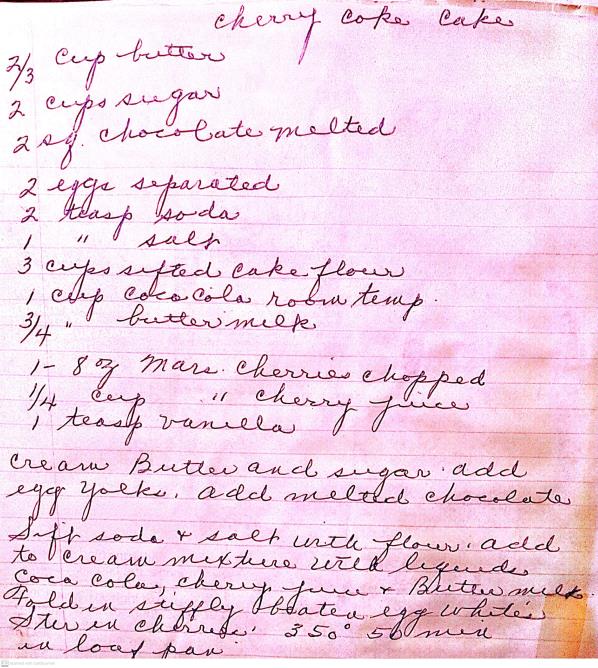 cherry coke cake
2/3 cup butter
2 cups sugar
2 sq. chocolate melted
2 eggs separated
2 teasp soda
1 " salt
3 cups sifted cake flour
1 cup coca cola room temp.
3/4 " buttermilk
1 - 8 oz Mars. cherries chopped
1/4 cup " cherry juice
1 teasp vanilla
cream Butter and sugar. add
egg yolks. add melted chocolate
Sift soda & salt with flour. add
to cream mixture with liquids
Coca cola, cherry juice & Buttermilk.
Fold in stiffly beaten egg white.
Stir in cherries. 350° 50 min
in loaf pan